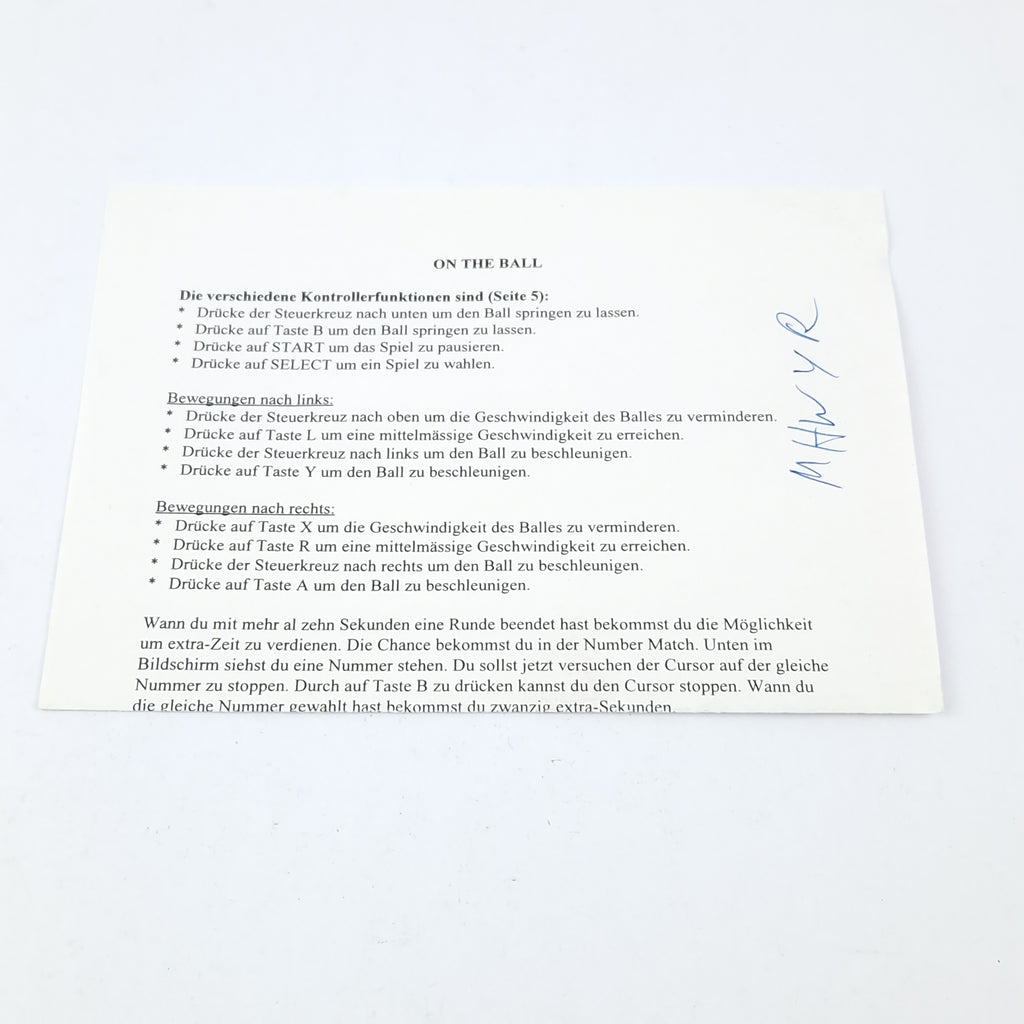 ON THE BALL
Die verschiedene Kontrollerfunktionen sind (Seite 5):
* Drücke der Steuerkreuz nach unten um den Ball springen zu lassen.
* Drücke auf Taste B um den Ball springen zu lassen.
* Drücke auf START um das Spiel zu pausieren.
* Drücke auf SELECT um ein Spiel zu wahlen.
Bewegungen nach links:
* Drücke der Steuerkreuz nach oben um die Geschwindigkeit des Balles zu verminderen.
* Drücke auf Taste L um eine mittelmässige Geschwindigkeit zu erreichen.
* Drücke der Steuerkreuz nach links um den Ball zu beschleunigen.
* Drücke auf Taste Y um den Ball zu beschleunigen.
Bewegungen nach rechts:
* Drücke auf Taste X um die Geschwindigkeit des Balles zu verminderen.
* Drücke auf Taste R um eine mittelmässige Geschwindigkeit zu erreichen.
* Drücke der Steuerkreuz nach rechts um den Ball zu beschleunigen.
* Drücke auf Taste A um den Ball zu beschleunigen.
Wann du mit mehr al zehn Sekunden eine Runde beendet hast bekommst du die Möglichkeit
um extra-Zeit zu verdienen. Die Chance bekommst du in der Number Match. Unten im
Bildschirm siehst du eine Nummer stehen. Du sollst jetzt versuchen der Cursor auf der gleiche
Nummer zu stoppen. Durch auf Taste B zu drücken kannst du den Cursor stoppen. Wann du
die gleiche Nummer gewahlt hast bekommst du zwanzig extra-Sekunden.
MHWYR